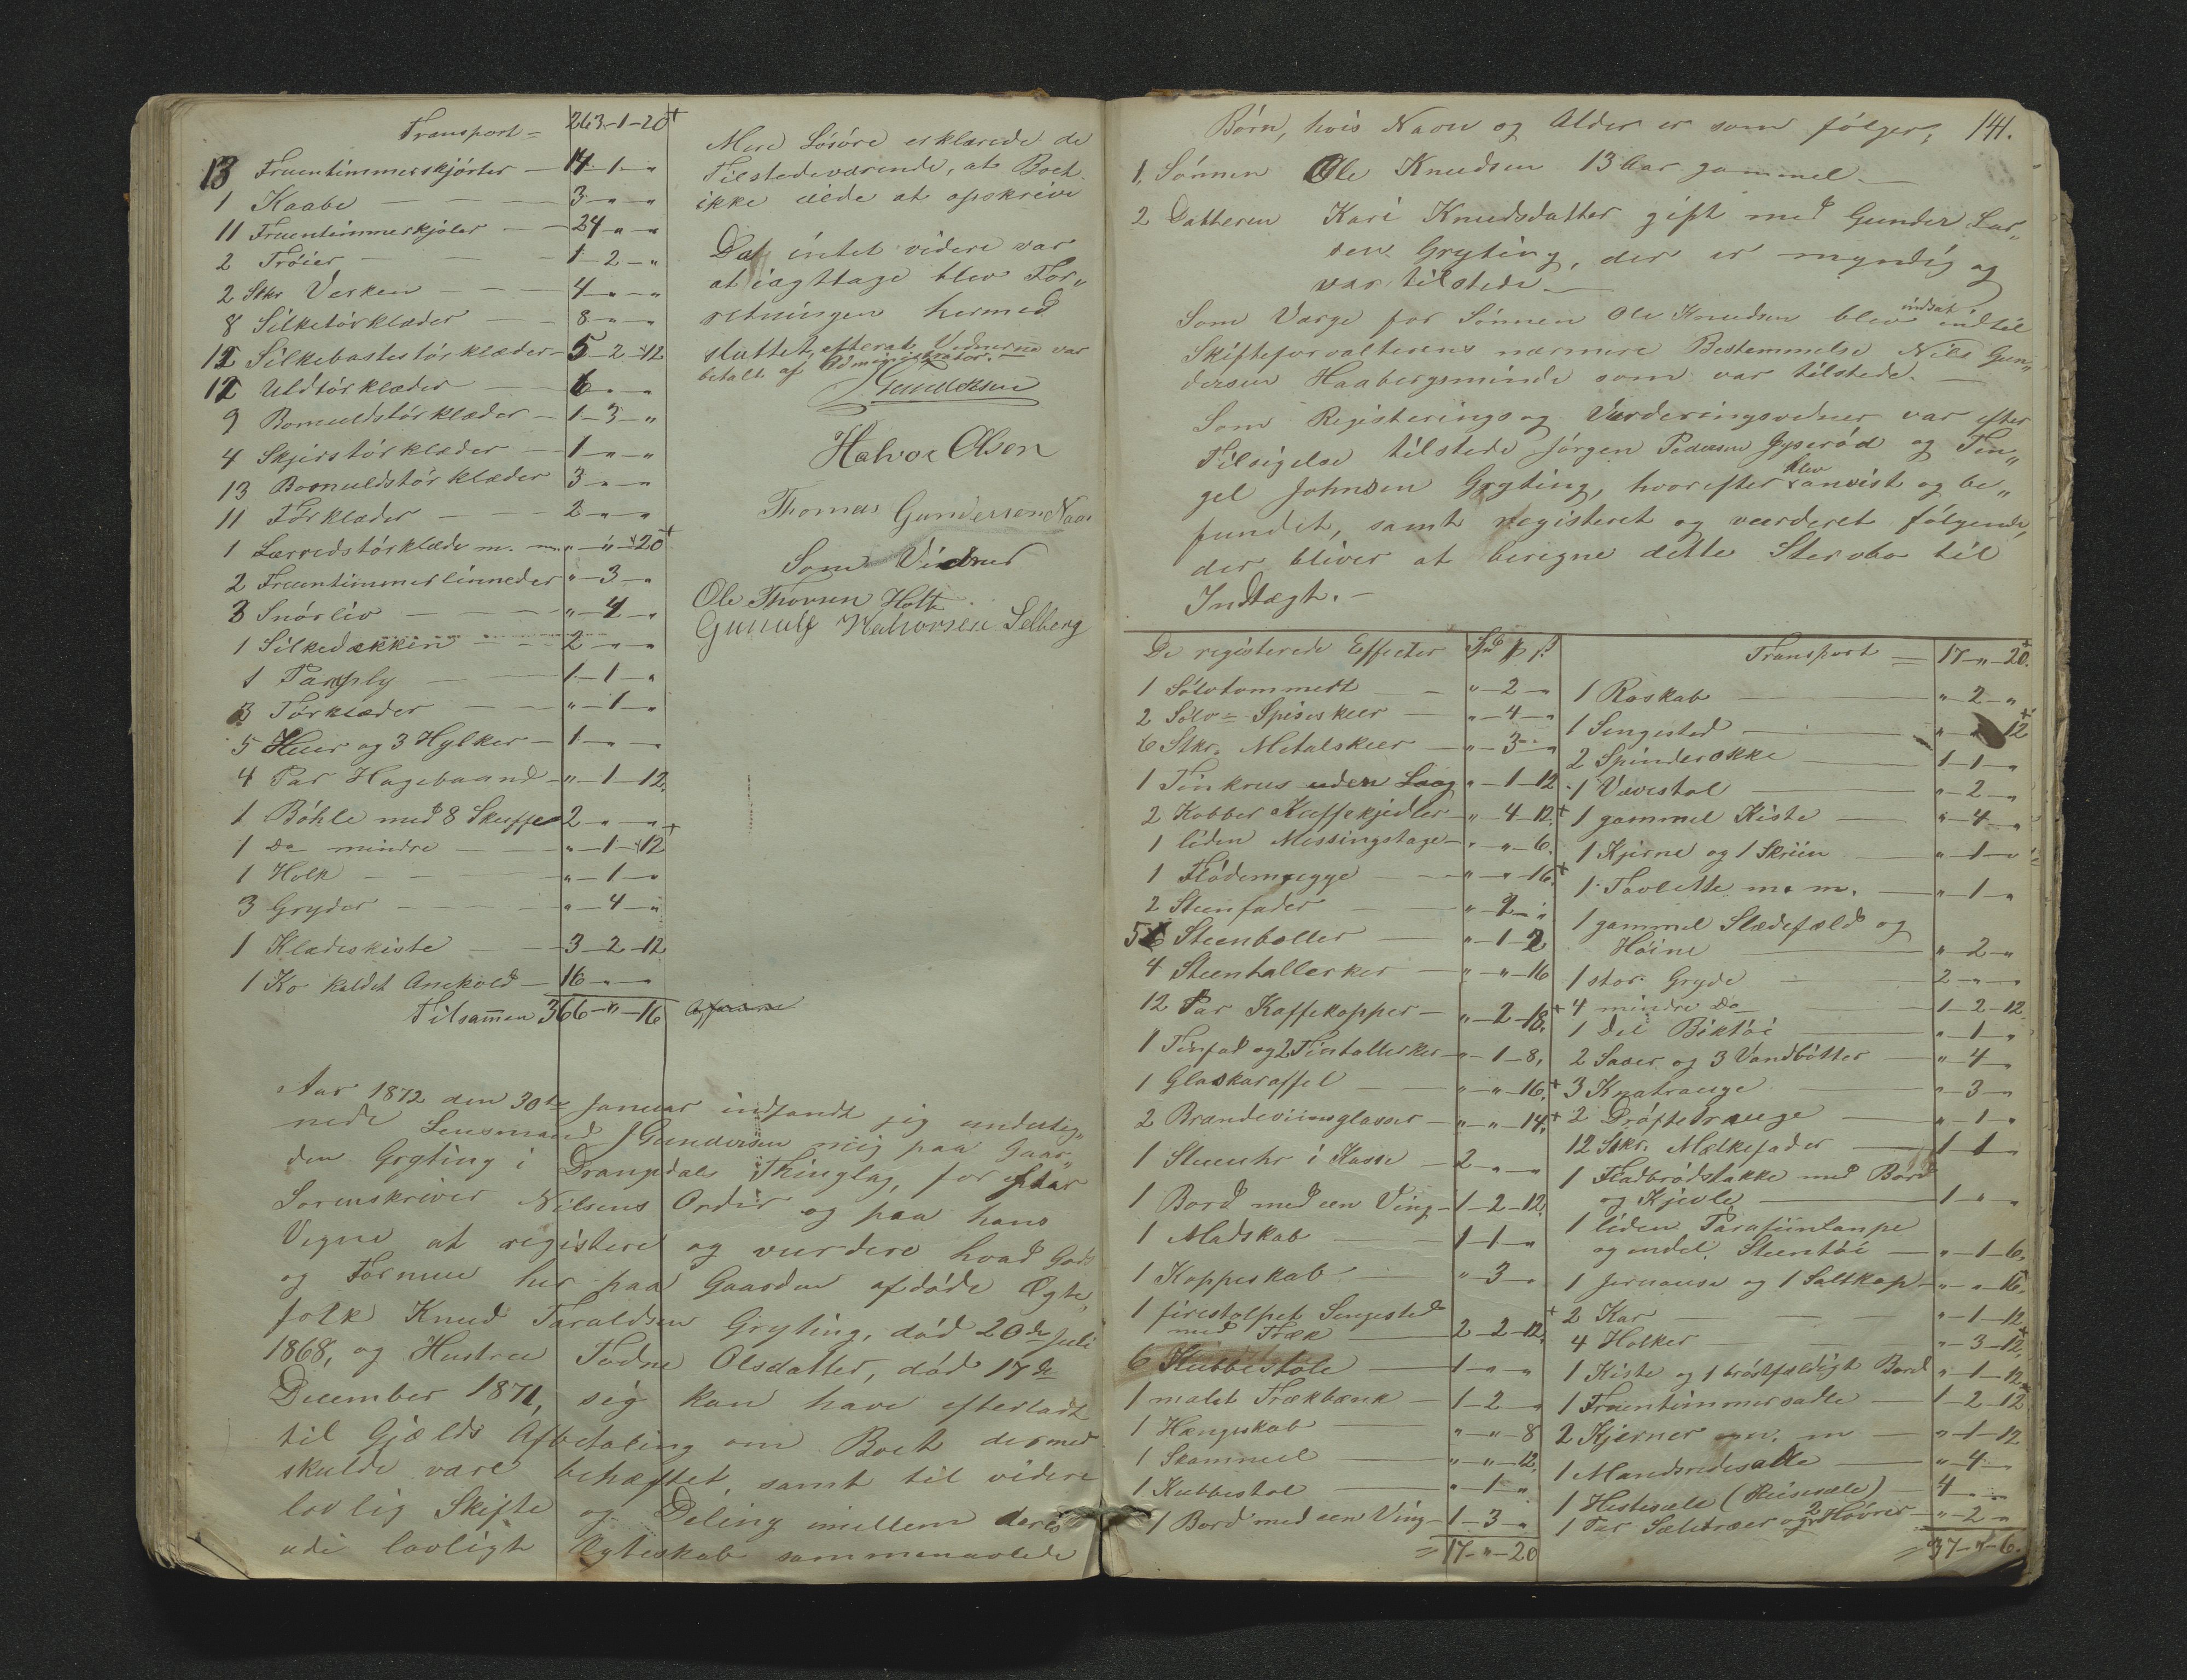 Transport = 263-1-20
13 Fruentimmerskjörter — 14-1-"
1 Kaabe — 3-"-"
11 Fruentimmerkjoler — 24-"-"
2 Tröier — 1-2-"
2 Stkr Verken — 4-"-"
8 Silketörklæder — 8-"-"
12 Silkebastestörklæder — 5-2-12
12 Uldtörklæder — 6-"-"
9 Bomuldstörklæder — 1-3-"
4 Skjerstörklæder — 1-"-"
13 Bomuldstörklæder 3-"-"
11 Förklæder — 2-"-"
1 Lærredstörklæde m. m. "-"-20
2 Fruentimmerlinneder "-3-"
3 Snörliv — "-4-"
1 Silkedækken — 2-"-"
1 Paraply — 1-1-"
3 Törklæder — "-1-"
5 Huer og 3 Hylker — 1-"-"
4 Par Hagebaand "-1-12.
1 Böhle med 8 Skuffe 2-"-"
1 Do mindre — "-1-12
1 Holk — "-1-"
3 Gryder — "-4-"
1 Klædeskiste — 3-2-12
1 Ko kaldet Anekold — 16-"-"
Tilsammen 366-"-16
Mere Lösöre erklærede de
Tilstedeværende, at Boet
ikke eiede at opskrive
Da intet videre var
at iagttage blev For„
retningen hermed
sluttet, efterat Vidnerne var
betalt af Administrator.
J Gundersen
Halvor Olsen
Thomas Gundersen Naas
Som Vidner
Ole Thovsen Holte
Gunulf Halvorsen Selberg
Aar 1872 den 30te Januar indfandt jig underteg„
nede Lensmand J Gundersen mig paa Gaar„
den Gryting i Drangedals Thinglag, for efter
Sorenskriver Nilsens Ordre og paa hans
Vegne at registere og vurdere hvad Gods
og Formue her paa Gaarden afdöde Ægte„
folk Knud Taraldsen Gryting, död 20de Juli
1868, og Hustru Todne Olsdatter, död 17de
December 1871, sig kan have efterladt
til Gjælds Afbetaling om Boet dermed
skulde være behæftet, samt til videre
lovlig Skifte og Deling imellem deres
udi lovligt Ægteskab sammenavlede
141.
Börn, hvis Navn og Alder er som fölger;
1, Sönnen Ole Knudsen 13 Aar gammel.
2 Datteren Kari Knudsdatter gift med Gunder Lar„
sen Gryting, der er myndig og
var tilstede
Som Værge for Sönnen Ole Knudsen blev indsat indtil
Skifteforvalterens nærmere Bestemmelse Nils Gun„
dersen Haabergsminde som var tilstede.
Som Registerings og Vurderingsvidner var efter
Tilsigelse tilstede Jörgen Pedersen Jyseröd og Tin„
gel Johnsen Gryting, hvorefter blev anvist og be„
fundet, samt registeret og vurderet fölgende,
der bliver at beregne dette Stervbo til
Indtægt.
De registerede Effecter Spd ß
1 Sölvtommert — "-2-"
2 Sölv-Spiseskeer — "-4-"
6 Stkr. Metalskeer — "-3-"
1 Tinkrus uden Laag "-1-12
2 Kobber Kaffekjedler "-4-12.
1 liden Messingstage "-"-6.
1 Flödemugge — "-"-16.
2 Steenfader — "-2-"
5 Steenboller — "-1-2
4 Steentallerker — "-"-16
12 Par Kaffekopper — "-2-18.
1 Tinfad og 2 Tintallerker "-1-8,
1 Glaskaraffel — "-"-16.
2 Brændeviinsglasser — "-"-14.
1 Stueuhr i Kasse — 2-"-"
1 Bord med een Ving — 1-2-12.
1 Madskab — 1-1-"
1 Koppeskab — "-3-"
1 firestolpet Sengested
med Træk — 2-2-12.
6 Kubbestole — 1-"-"
1 malet Trækbænk — 1-2-"
1 Hængeskab — "-"-8
1 Skammel — "-"-12.
1 Kubbestol — "-1-"
1 Bord med een Ving — 1-3-"
= 17-"-20
Transport = 17-"-20.
1 Roskab — "-2-"
1 Sengested — "-"-12
2 Spinderokke — 1-1-"
1 Vævestol — "-2-"
1 gammel Kiste — "-4-"
1 Kjerne og 1 Skriin — "-1-"
1 Tavlette m. m. — "-1-"
1 gammel Slædefæld og
Höine — "-2-"
1 stor Gryde — 2-"-"
4 mindre Do — 1-2-12
1 Del Biktöi — "-1-"
2 Saaer og 3 Vandbötter — "-4-"
3 Knatrauge — "-3-"
2 Dröftetrauge — "-1-"
12 Stkr. Mælkefader — 1-1-"
1 Fladbrödstakke med Bord
og Kjevle — 1-"-"
1 liden Parafiinlampe
og endel Steentöi — "-1-6.
1 Jernause og 1 Saltkop — "-"-16.
2 Kar — "-1-12
4 Holker — "-3-12.
1 Kiste og 1 bröstfældigt Bord "-1-12
1 Fruentimmersadle — 1-2-12
2 Kjerner m. m — "-1-12
1 Mandsridesadle — "-4-"
1 Hestesæle (Reisesæle) — 4-"-"
1 Par Sæletræer og 2 Hövrer — "-2-"
= 37-"-6.